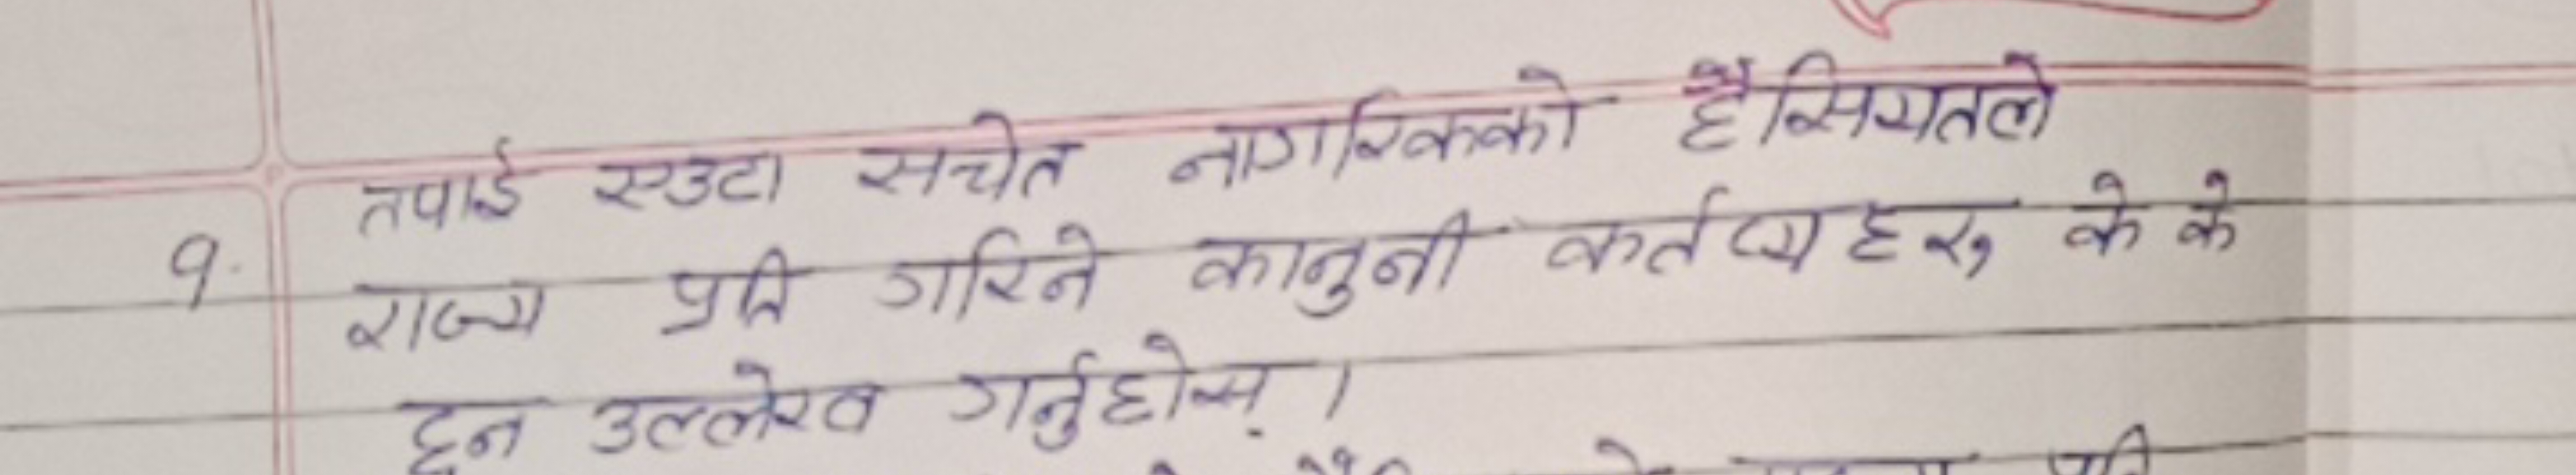 १. तपाई एउटा सचेत नागरिकको हैसियतले
राज्य प्रति गरिने कानुनी कर्तव्यहरु के के
हुन उल्लेख गर्नुहोस् ।